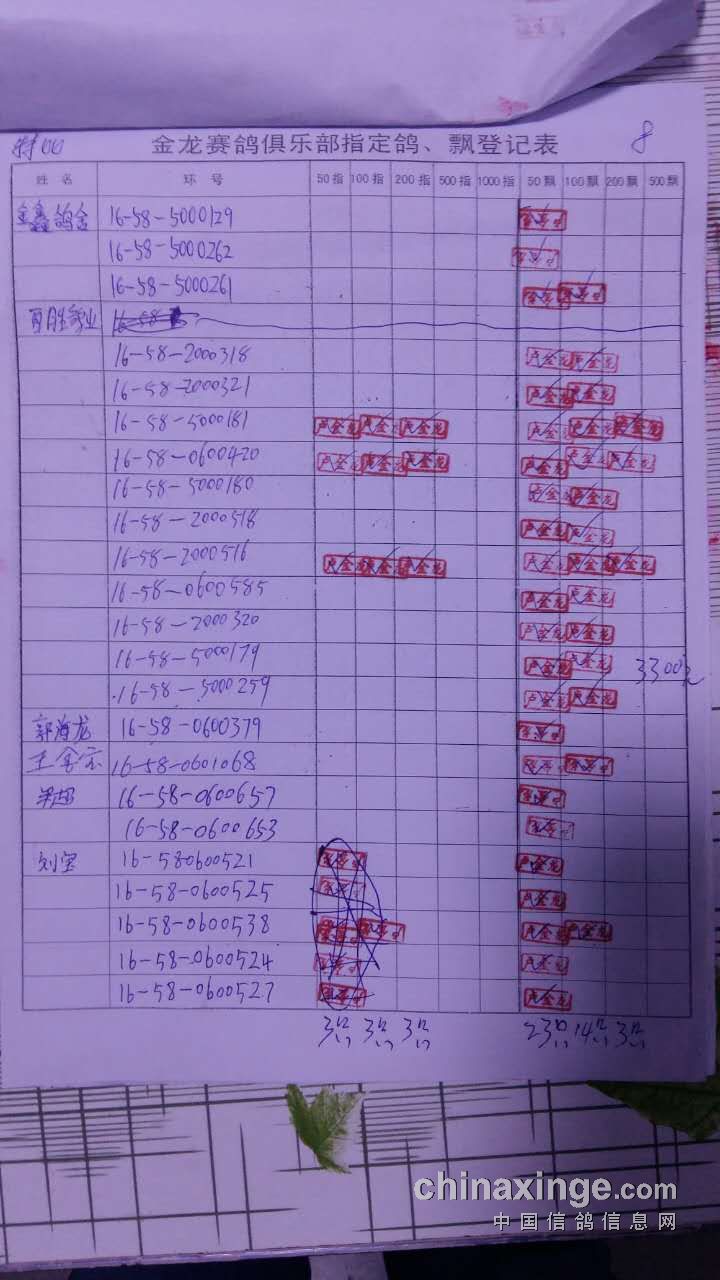 金龙赛鸽俱乐部指定鸽、飘登记表 8
姓名 环号 50指 100指 200指 500指 1000指 50飘 100飘 200飘 500飘
金鑫鸽舍 16-58-5000129
16-58-5000262
16-58-5000261
16-58
16-58-2000318 卢金龙 卢金龙
16-58-2000321 卢金龙 卢金龙
16-58-5000181 卢金龙 卢金龙 卢金龙 卢金龙 卢金龙 卢金龙
16-58-0600420 卢金龙 卢金龙 卢金龙 卢金龙 卢金龙 卢金龙
16-58-5000180 卢金龙 卢金龙
16-58-2000518 卢金龙 卢金龙
16-58-2000516 卢金龙 卢金龙 卢金龙 卢金龙 卢金龙 卢金龙
16-58-0600585 卢金龙 卢金龙
16-58-2000320 卢金龙 卢金龙
16-58-5000179 卢金龙 卢金龙 3300元
16-58-5000259 卢金龙 卢金龙
郭海龙 16-58-0600379
16-58-0601068
16-58-0600657
16-58-0600653
刘宝 16-580600521 卢金龙
16-58-0600525 卢金龙
16-58-0600538 卢金龙 卢金龙
16-58-0600524 卢金龙
16-58-0600527 卢金龙
3 3 3 23 14 3
chinaxinge.com
中国信鸽信息网